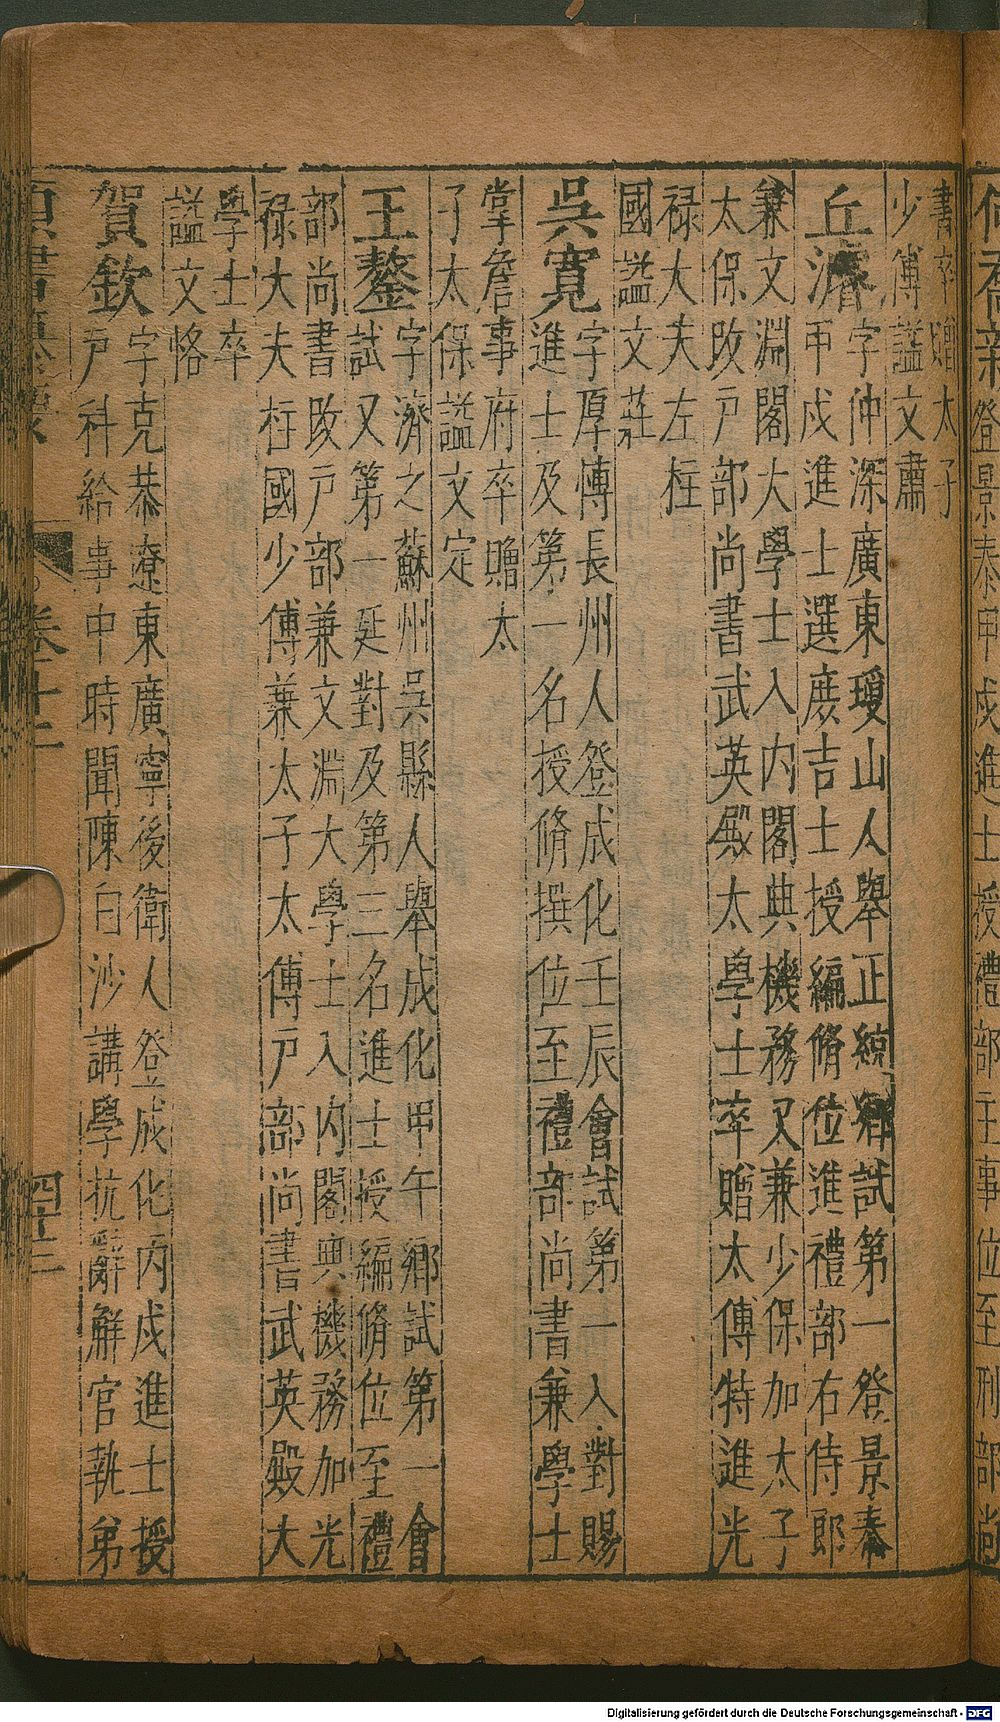 何喬新登景泰甲戌進士授禮部主事位至刑部尚
書卒贈太子
少傅謚文肅
丘濬字仲深廣東瓊山人舉正統鄉試第一登景泰
甲戌進士選庶吉士授編脩位進禮部右侍郎
兼文淵閣大學士入内閣典機務又兼少保加太子
太保改戶部尚書武英殿太學士卒贈太傅特進光
禄大夫左柱
國謚文莊
吳寬字厚慱長州人登成化壬辰會試第一入對賜
進士及第第一名授脩撰位至禮部尚書兼學士
掌詹事府卒贈太
子太保謚文定
王鏊字濟之蘇州吳縣人舉成化甲午鄉試第一會
試又第一廷對及第三名進士授編脩位至禮
部尚書改戶部兼文淵大學士入内閣典機務加光
禄大夫柱國少傅兼太子太傅戶部尚書武英殿大
學士卒
謚文恪
賀欽字克恭遼東廣寧後衛人登成化丙戌進士授
戶科給事中時聞陳白沙講學抗辭解官執弟
卷二十二
四十三
Digitalisierung gefördert durch die Deutsche Forschungsgemeinschaft - DFG